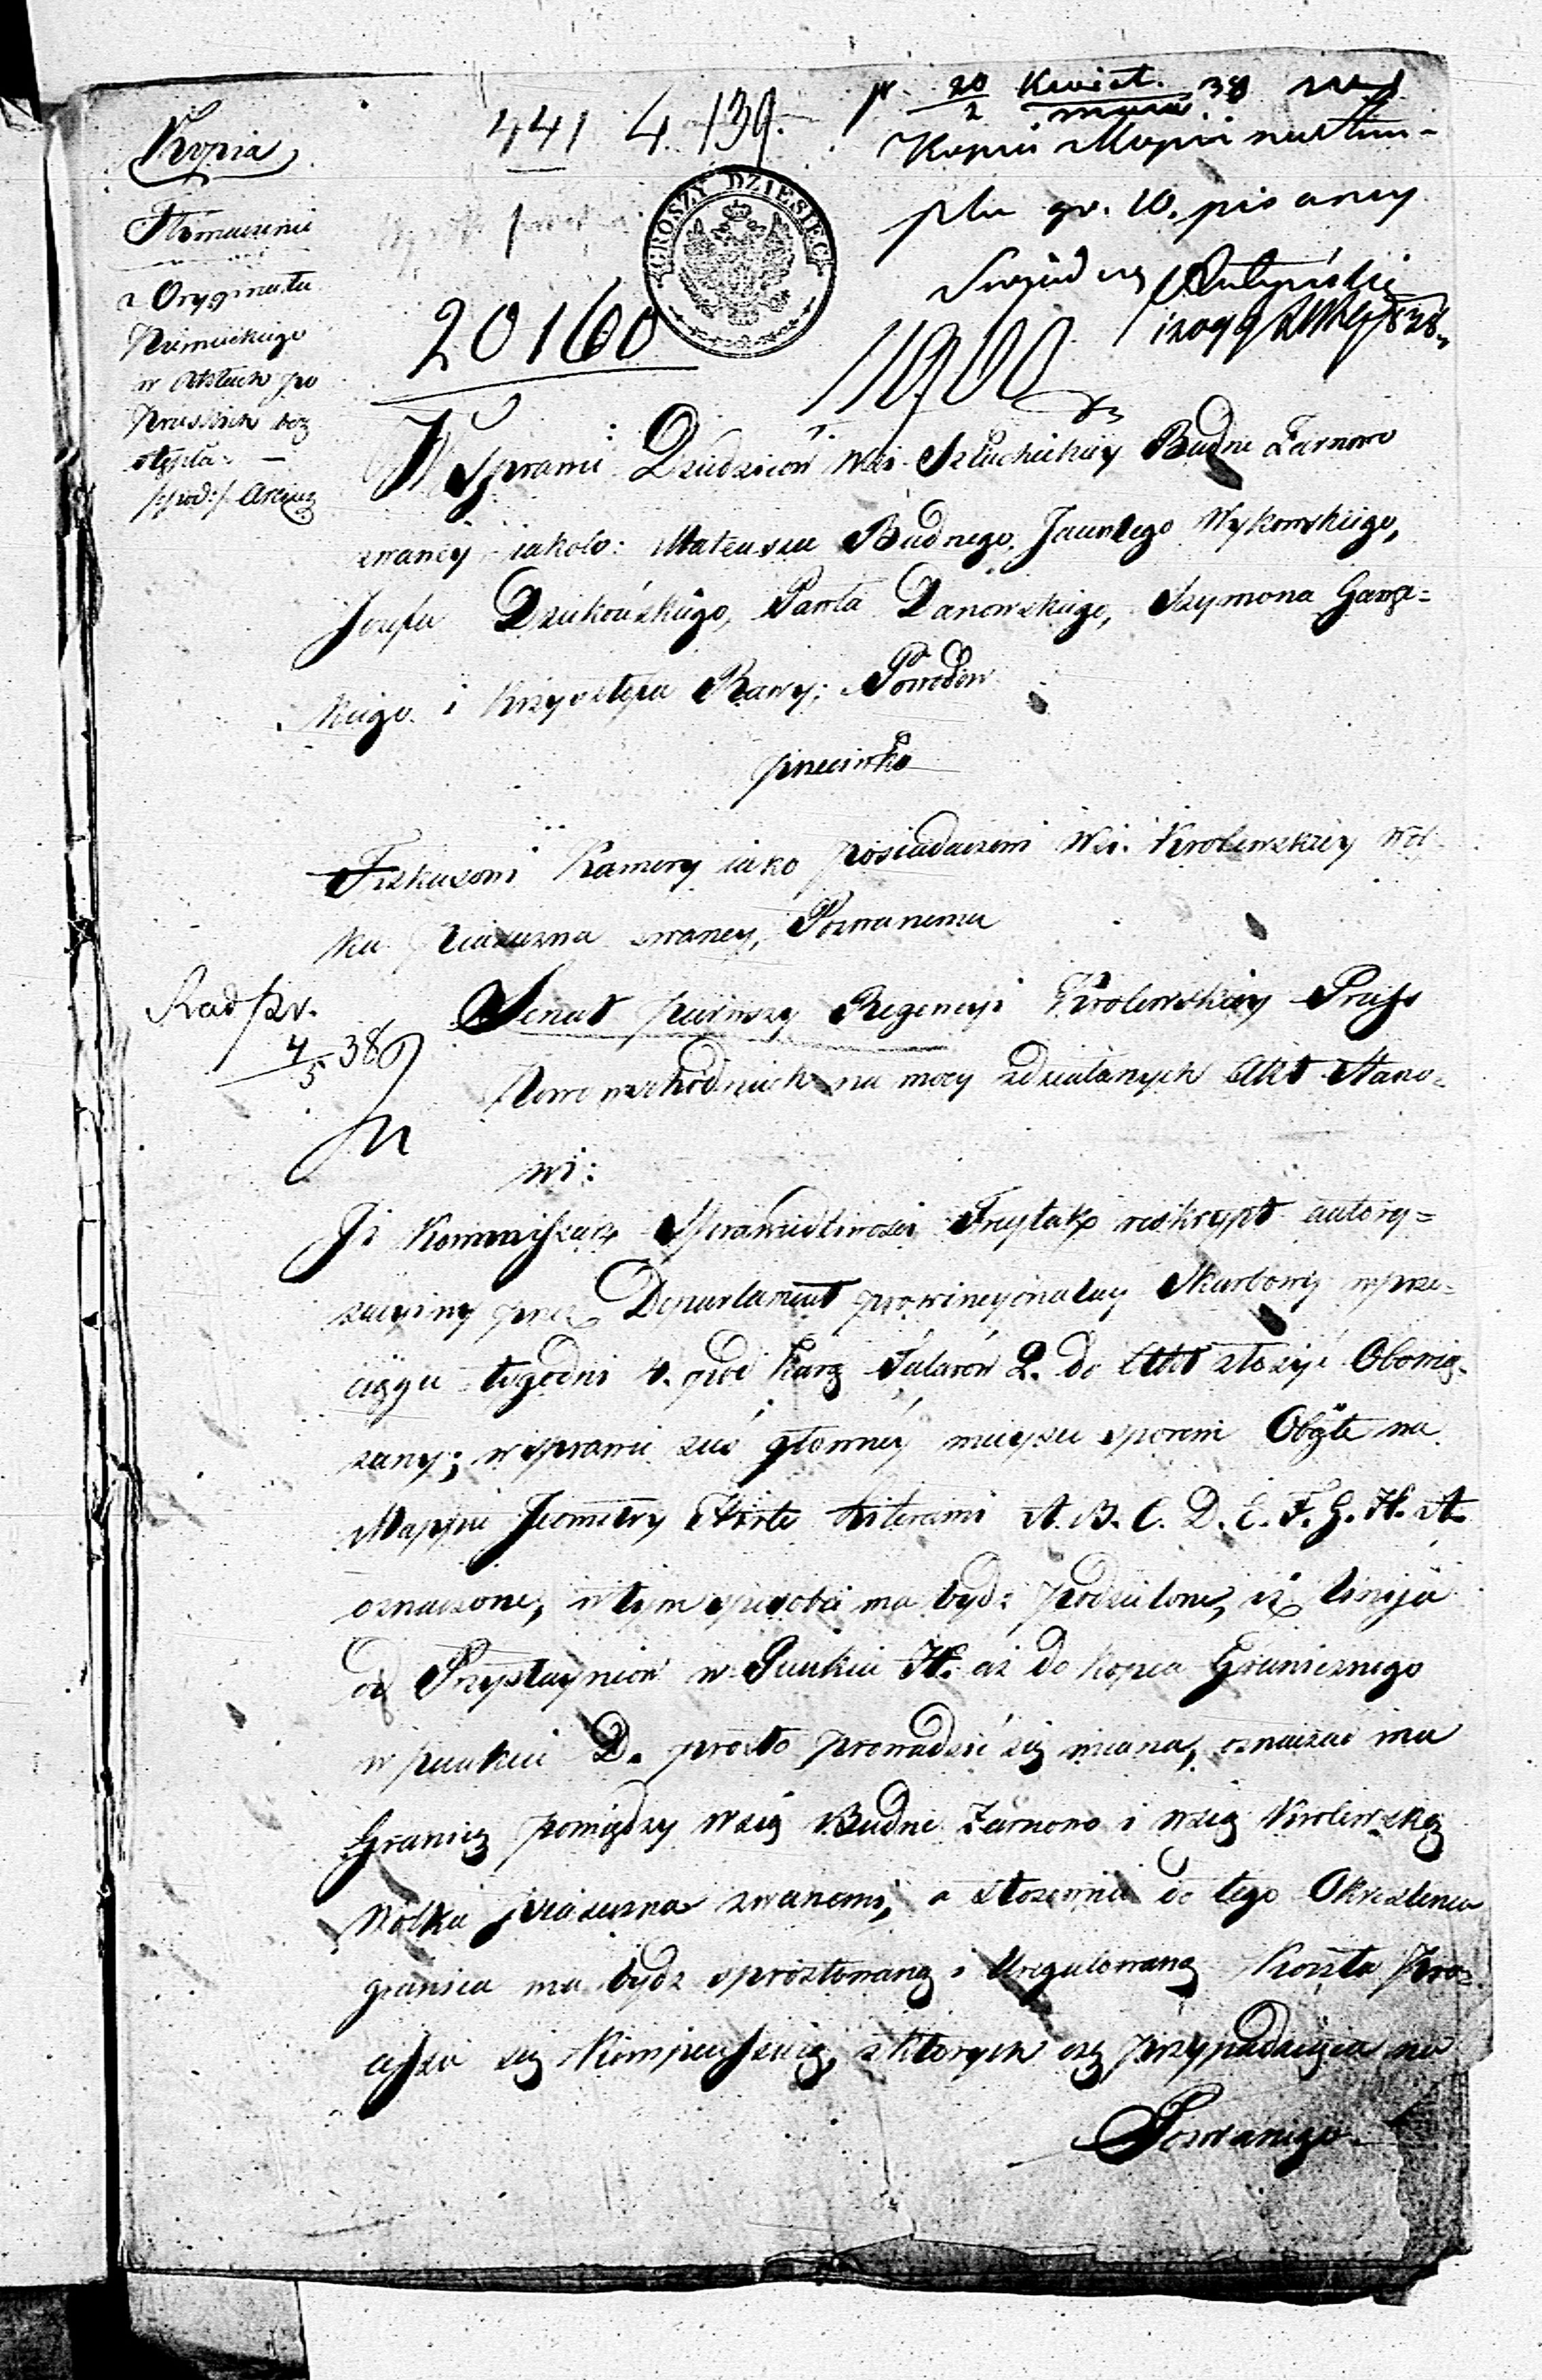 Kopia
Tłomaczenie
z Oryginału
Niemieckiego
w Aktach po
Pruskich bez
stępla. —
/:pod:/
441 4. 139.
20160
GROSZY DZIESIĘĆ
11900
20 Kwiet. 38
2 maia
Kopia z Kopii na stęm-
plu gr. 10. pisaney
W Sprawie Dziedziców Wsi Szlacheckiey Budne Żarnowo
zwaney iakoto: Mateusza Budnego, Jacentego Wykowskiego,
Jozefa Dziekońskiego, Pawła Danowskiego, Szymona Gawę-
ckiego i Krzysztofa Rawy; Powodów
przeciwko
Fiskusowi Kamery iako posiadaczowi Wsi Krolewskiey Wól-
ka Piaseczna zwaney, Pozwanemu
Rad pr.
4/5 38
Senat pierwszy Regencyi Krolewskiey Pruss
Nowo wschodnich na mocy zdziałanych Akt Stano-
wi:
Iż Kommissarz Sprawiedliwości Freytak reskrypt autory-
zacyiny przez Departament prowincyonalny Skarbowy w prze-
ciągu tygodni 4. pod karą Talarów 2. do Akt złożyć Obowią-
zany; w sprawie zaś główney mieysce sporem Objęte na
Mappie Jeometry literami A. B. C. D. E. F. G. H. A.
oznaczone, w tym sposobie ma bydź podzielone, iż linija
od Przystayniów w Punkcie H. aż do kopca Granicznego
w punkcie D. prosto prowadzić się miana, oznaczać ma
Granicę pomiędzy wsią Budne Żarnowo i wsią Krolewską
Wolka piaseczna zwanemi, a stosownie do tego Okreslenia
granica ma bydź sprostowaną i Uregulowaną Koszta Pro-
cessu się Kompensuią, z których część przypadaiąca na
Pozwanego